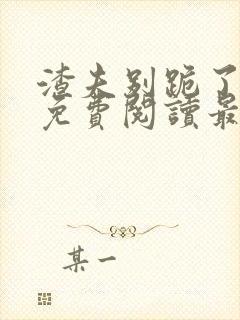 渣夫别跪了
免費閱讀最
某一